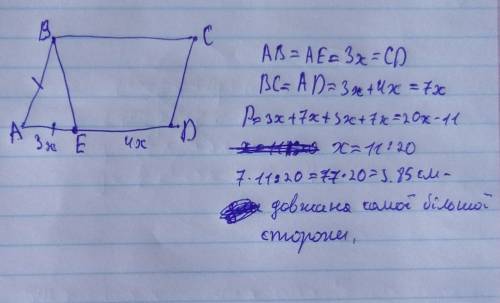 B
C
A
E
D
3x
4x
AB = AE = 3x = CD
BC = AD = 3x + 4x = 7x
P = 3x + 7x + 3x + 7x = 20x - 11
x = 11 : 20
7 · 11 : 20 = 77 : 20 = 3.85 см -
довжина самой більшої
стороны.